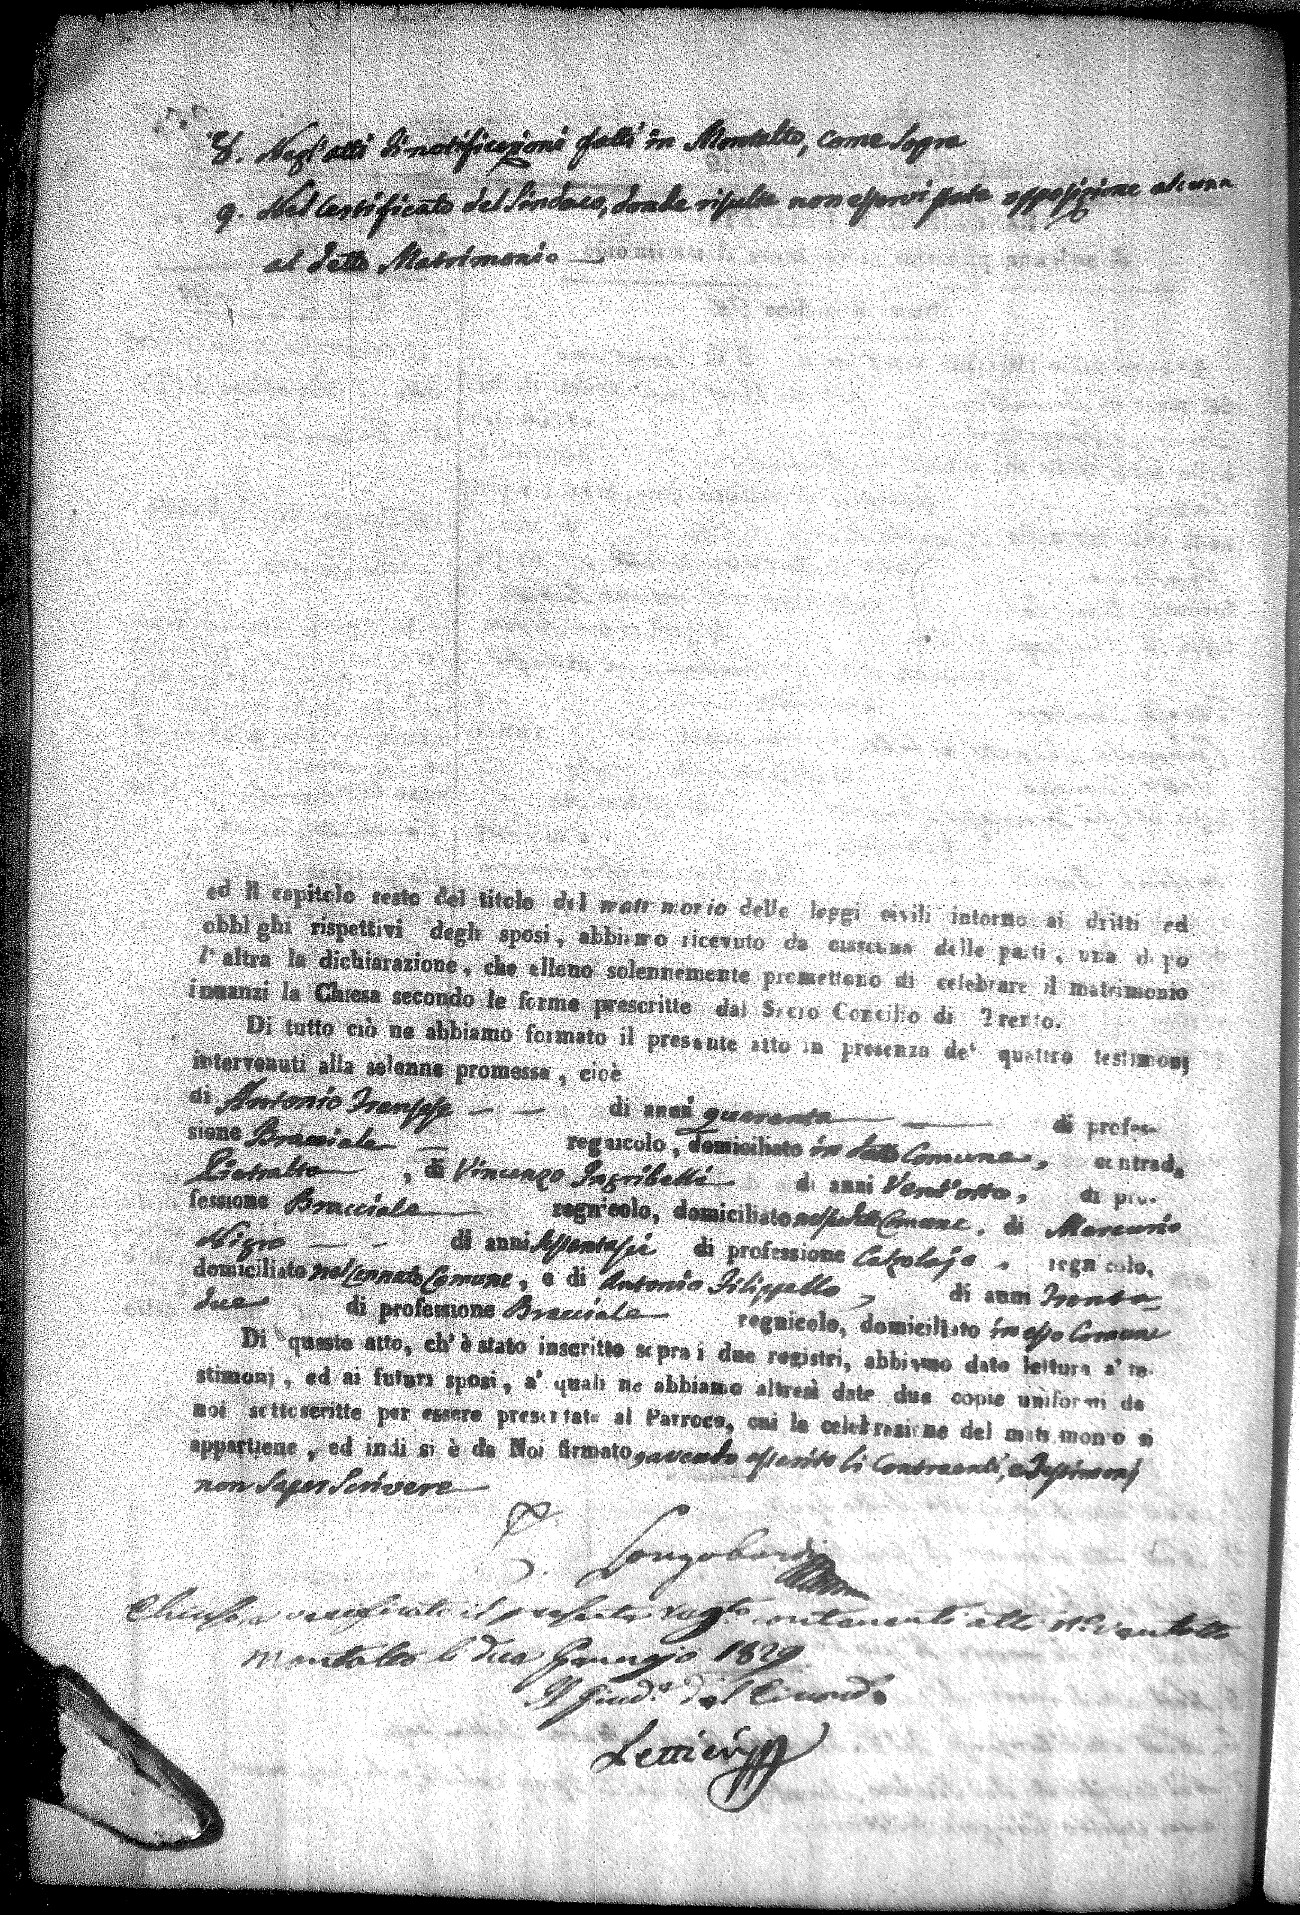 8. Negl'atti di notificazioni fatti in Montalto, come sopra
9. Nel Certificato del Sindaco, donde risulta non esservi stata opposizione alcuna
al detto Matrimonio
ed il capitolo sesto del titolo del matrimonio delle leggi civili intorno ai dritti ed
obblighi rispettivi degli sposi, abbiamo ricevuto da ciascuna delle parti, una dopo
l'altra la dichiarazione, che elleno solennemente promettono di celebrare il matrimonio
innanzi la Chiesa secondo le forme prescritte dal Sacro Concilio di Trento.
Di tutto ciò ne abbiamo formato il presente atto in presenza de' quattro testimonj
intervenuti alla solenne promessa, cioè
di Antonio di anni quaranta di profes-
sione Bracciale regnicolo, domiciliato in detto Comune, contrada
Pietralta, di Vincenzo di anni Vent'otto, di pro-
fessione Bracciale regnicolo, domiciliato nel detto Comune, di Mercurio
Nigro di anni sessantasei di professione Calzolajo, regnicolo,
domiciliato nel cennato Comune, e di Antonio Filippello, di anni Trenta-
due di professione Bracciale regnicolo, domiciliato in esso Comune
Di questo atto, ch'è stato inscritto sopra i due registri, abbiamo dato lettura a' te-
stimonj, ed ai futuri sposi, a' quali ne abbiamo altresì date due copie uniformi da
noi sottoscritte per essere presentate al Parroco, cui la celebrazione del matrimonio si
appartiene, ed indi si è da Noi firmato, avendo asserito li Contraenti, e Testimonj
non saper Scrivere
Longobardi
Chiuso e verificato il presente contenenti atti
Montalto li due Gennajo 1829
Il Giud.e del Circond.o
Lettieri